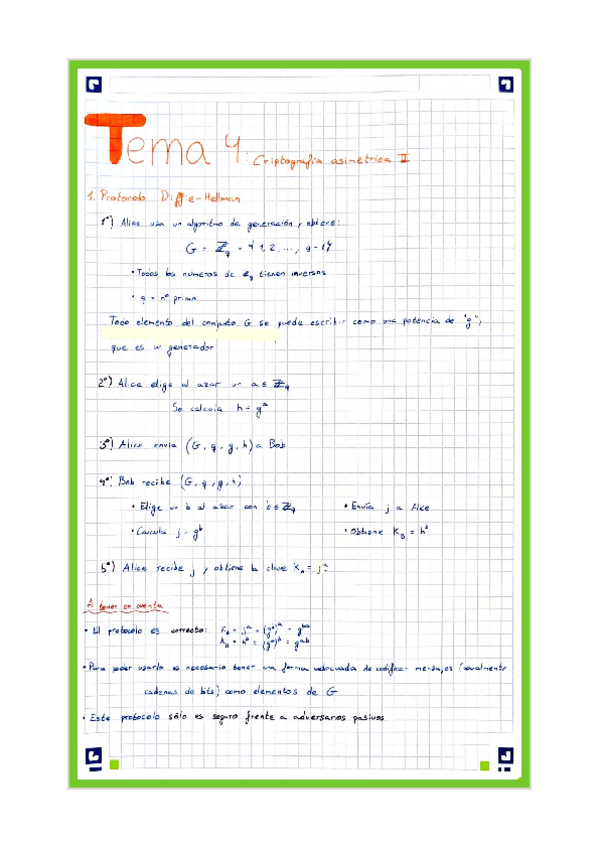 Tema 4: Criptografía asimétrica II
1. Protocolo Diffie-Hellman
1º) Alice usa un algoritmo de generación y obtiene:
G = ℤq = {1, 2, ..., q-1}
• Todos los números de ℤq tienen inversos
• q = nº primo
Todo elemento del conjunto G se puede escribir como una potencia de "g",
que es un generador
2º) Alice elige al azar un a ∈ ℤq
Se calcula h = g^a
3º) Alice envía (G, q, g, h) a Bob
4º) Bob recibe (G, q, g, h)
• Elige un b al azar con b ∈ ℤq
• Envía j a Alice
• Calcula j = g^b
• Obtiene K_B = h^b
5º) Alice recibe j y obtiene la clave K_A = j^a
A tener en cuenta
• El protocolo es correcto: K_A = j^a = (g^b)^a = g^ba
K_B = h^b = (g^a)^b = g^ab
• Para poder usarlo es necesario tener una forma adecuada de codificar mensajes (usualmente
cadenas de bits) como elementos de G
• Este protocolo sólo es seguro frente a adversarios pasivos